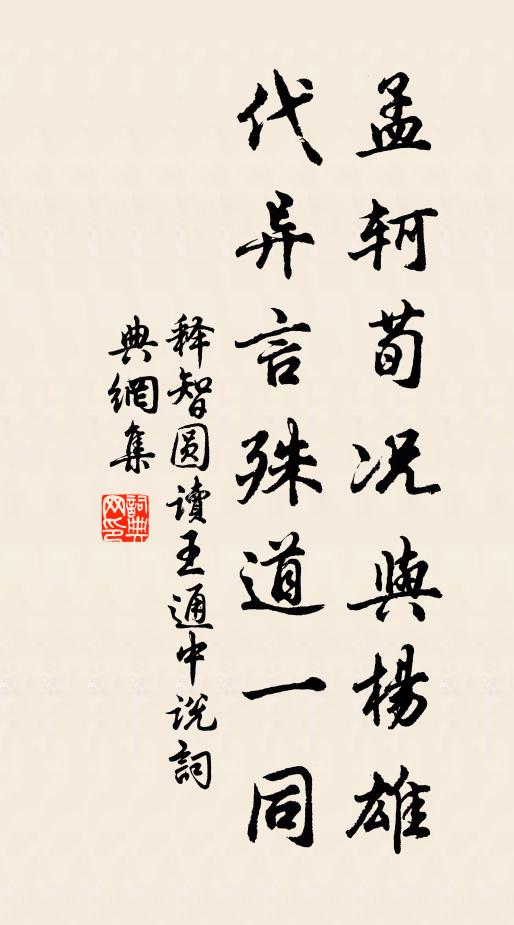 孟轲荀况與楊雄
代异言殊道一同
释智圆讀王通中说詞
典網集
詞典网印